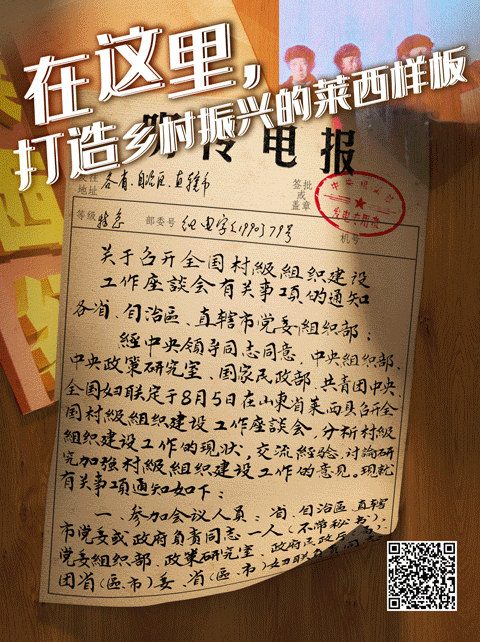 在这里，
打造乡村振兴的莱西样板
传电报
地址
各省、自治区、直辖市
签批
或
盖章
等级
特急
部委号
组电字(1990)79号
机号
关于召开全国村级组织建设
工作座谈会有关事项的通知
各省、自治区、直辖市党委组织部：
经中央领导同志同意，中央组织部、
中央政策研究室、国家民政部、共青团中央、
全国妇联定于8月5日在山东省莱西县召开全
国村级组织建设工作座谈会，分析村级
组织建设工作的现状，交流经验，讨论研
究加强村级组织建设工作的意见。现就
有关事项通知如下：
一、参加会议人员：省、自治区、直辖
市党委或政府负责同志一人（不带秘书）；
党委组织部、政策研究室、政府民政厅
团省（区、市）委、省（区、市）妇联负责同志